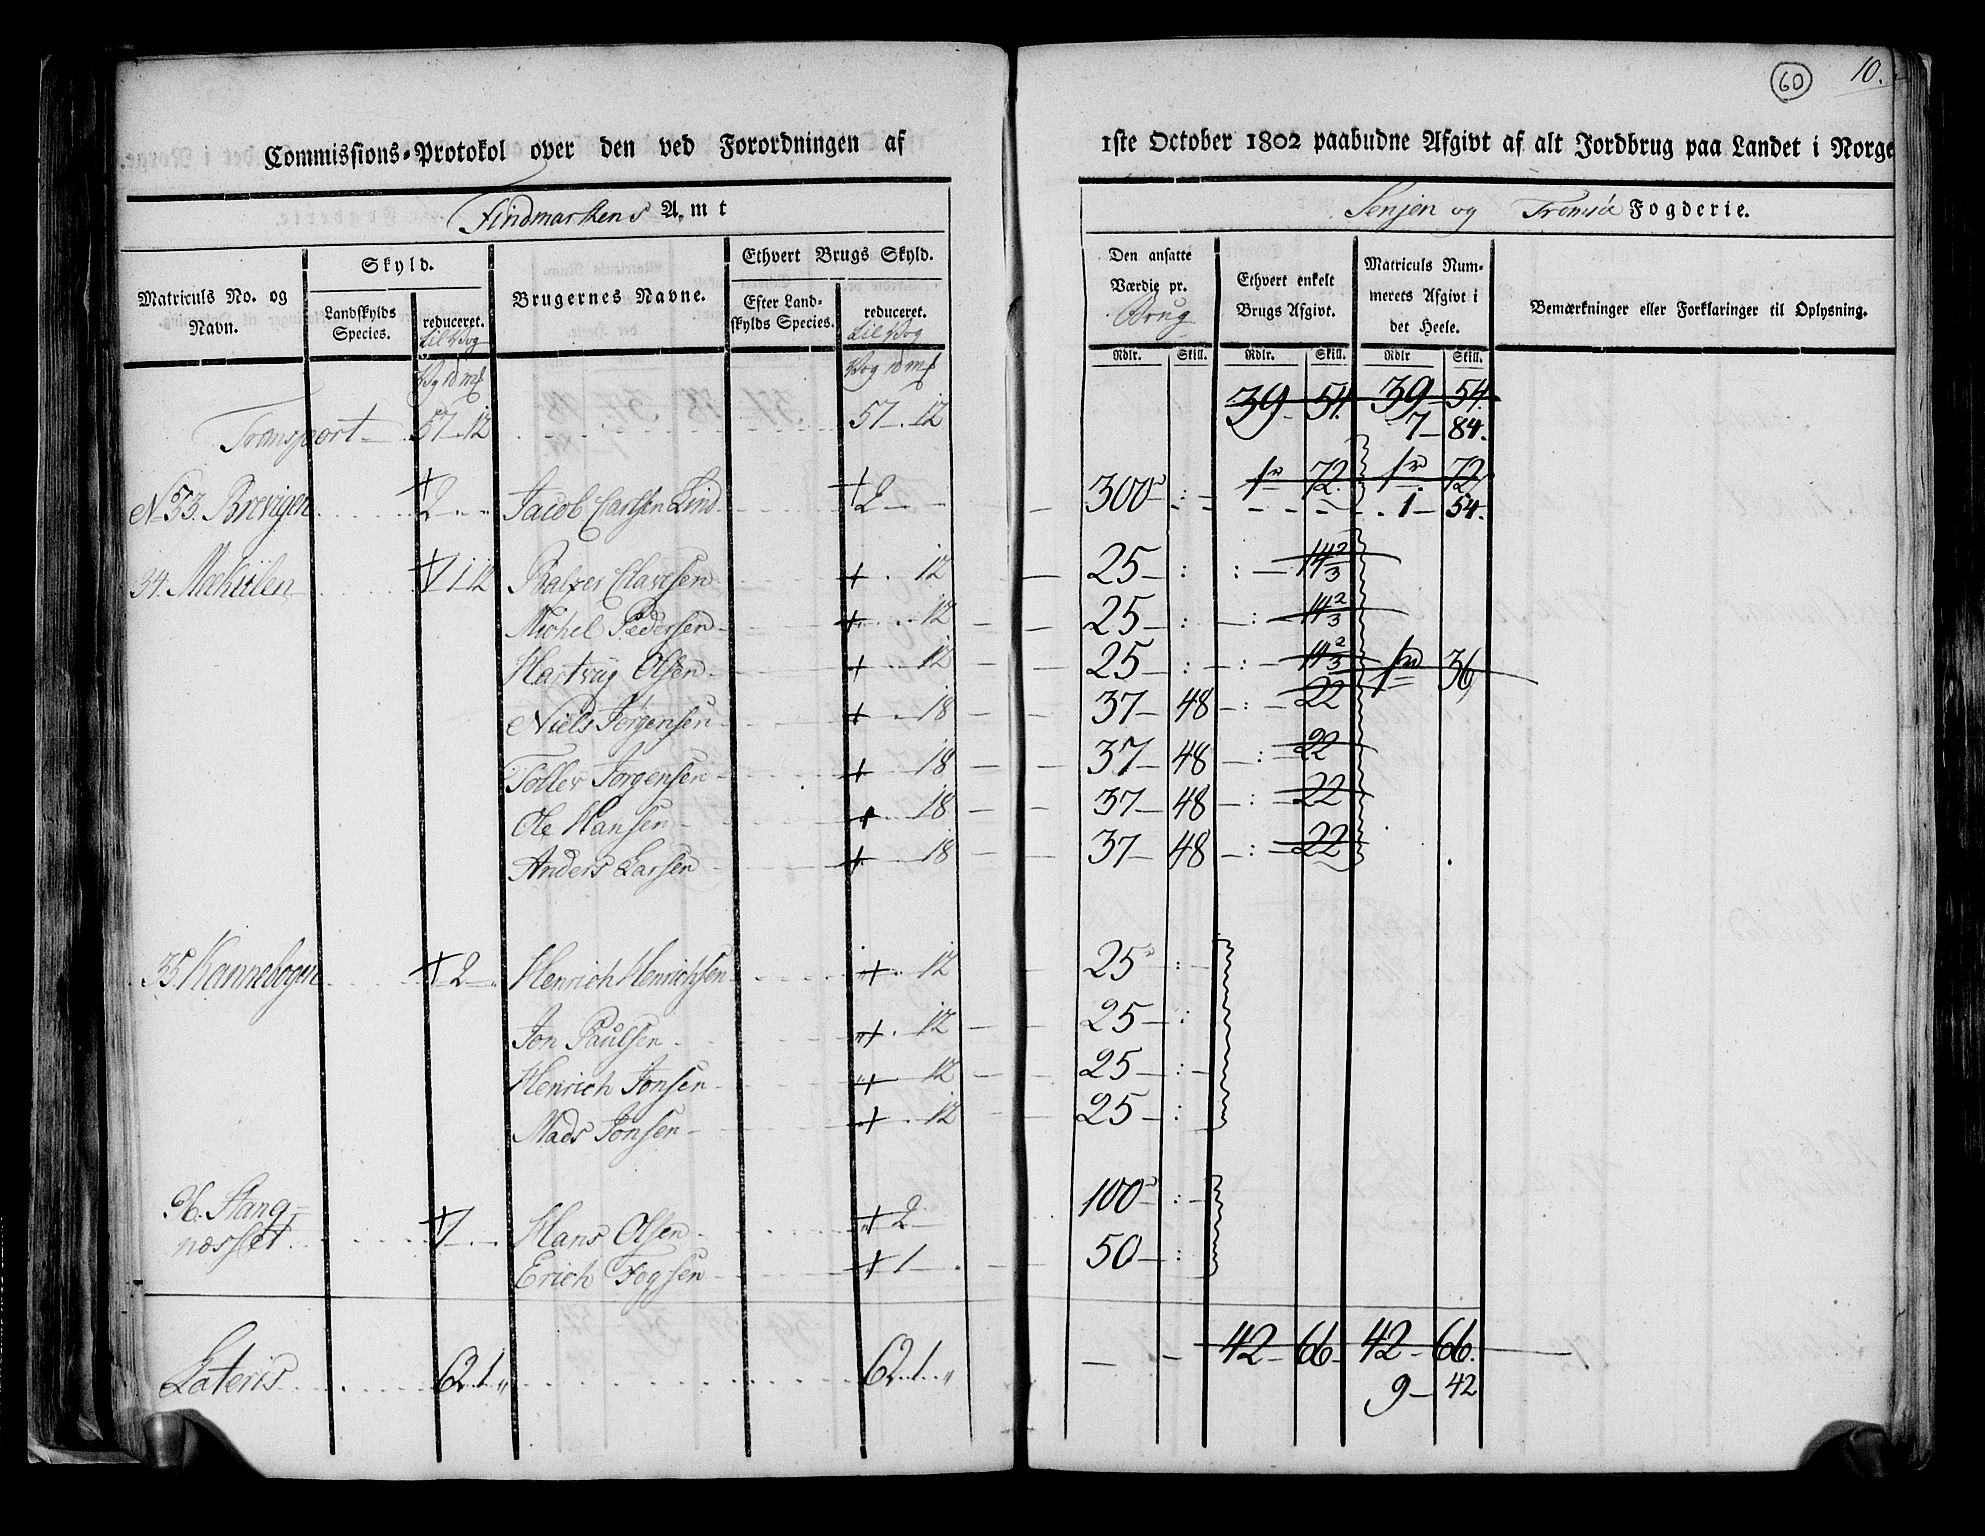 60 10.
Commissions-Protokol over den ved Forordningen af 1ste October 1802 paabudne Afgivt af alt Jordbrug paa Landet i Norge
Findmarkens Amt Senjen og Tromsöe Fogderie.
Matriculs No. og Navn.
Skyld.
Landskylds Species.
reduceret. til Vog
Brugernes Navne.
Ethvert Brugs Skyld.
Efter Landskylds Species.
reduceret. til Vog
Den ansatte Værdie pr. Brug
Ethvert enkelt Brugs Afgivt.
Matriculs Nummerets Afgivt i det Heele.
Bemærkninger eller Forklaringer til Oplysning.
Rdlr. Skill. Rdlr. Skill. Rdlr Skill.
Transport 57 . 12 57 . 12 39 - 54. 39 - 54.
7 - 84.
No 33. Brevigen 2 Jacob Carlsen Lind 2 300 - : 1 72. 1 72
1 - 54.
34. 1 12 Balzer Clausen 12 25 - : : 14 2/3
Michel Pedersen 12 25 - : : 14 2/3
Hartvig Olsen 12 25 : : 14 2/3 1 36
Niels Jørgensen 18 37 - 48 : 22
Toller Jørgensen 18 37 - 48 : 22
Ole Hansen 18 37 - 48 : 22
Anders Larsen 18 37 - 48 : 22
35 Kannebogen 2 Henrich Henrichsen 12 25 :
Jon Paulsen 12 25 - :
Henrich Jonsen 12 25 - :
Mads Jonsen 12 25 - :
36. Stang-
næsset Hans Olsen 2 100 :
Erich Fogsen 1 50 - :
Lateris 62. 1 " 62. 1 " 42 - 66 42 - 66.
9 - 42